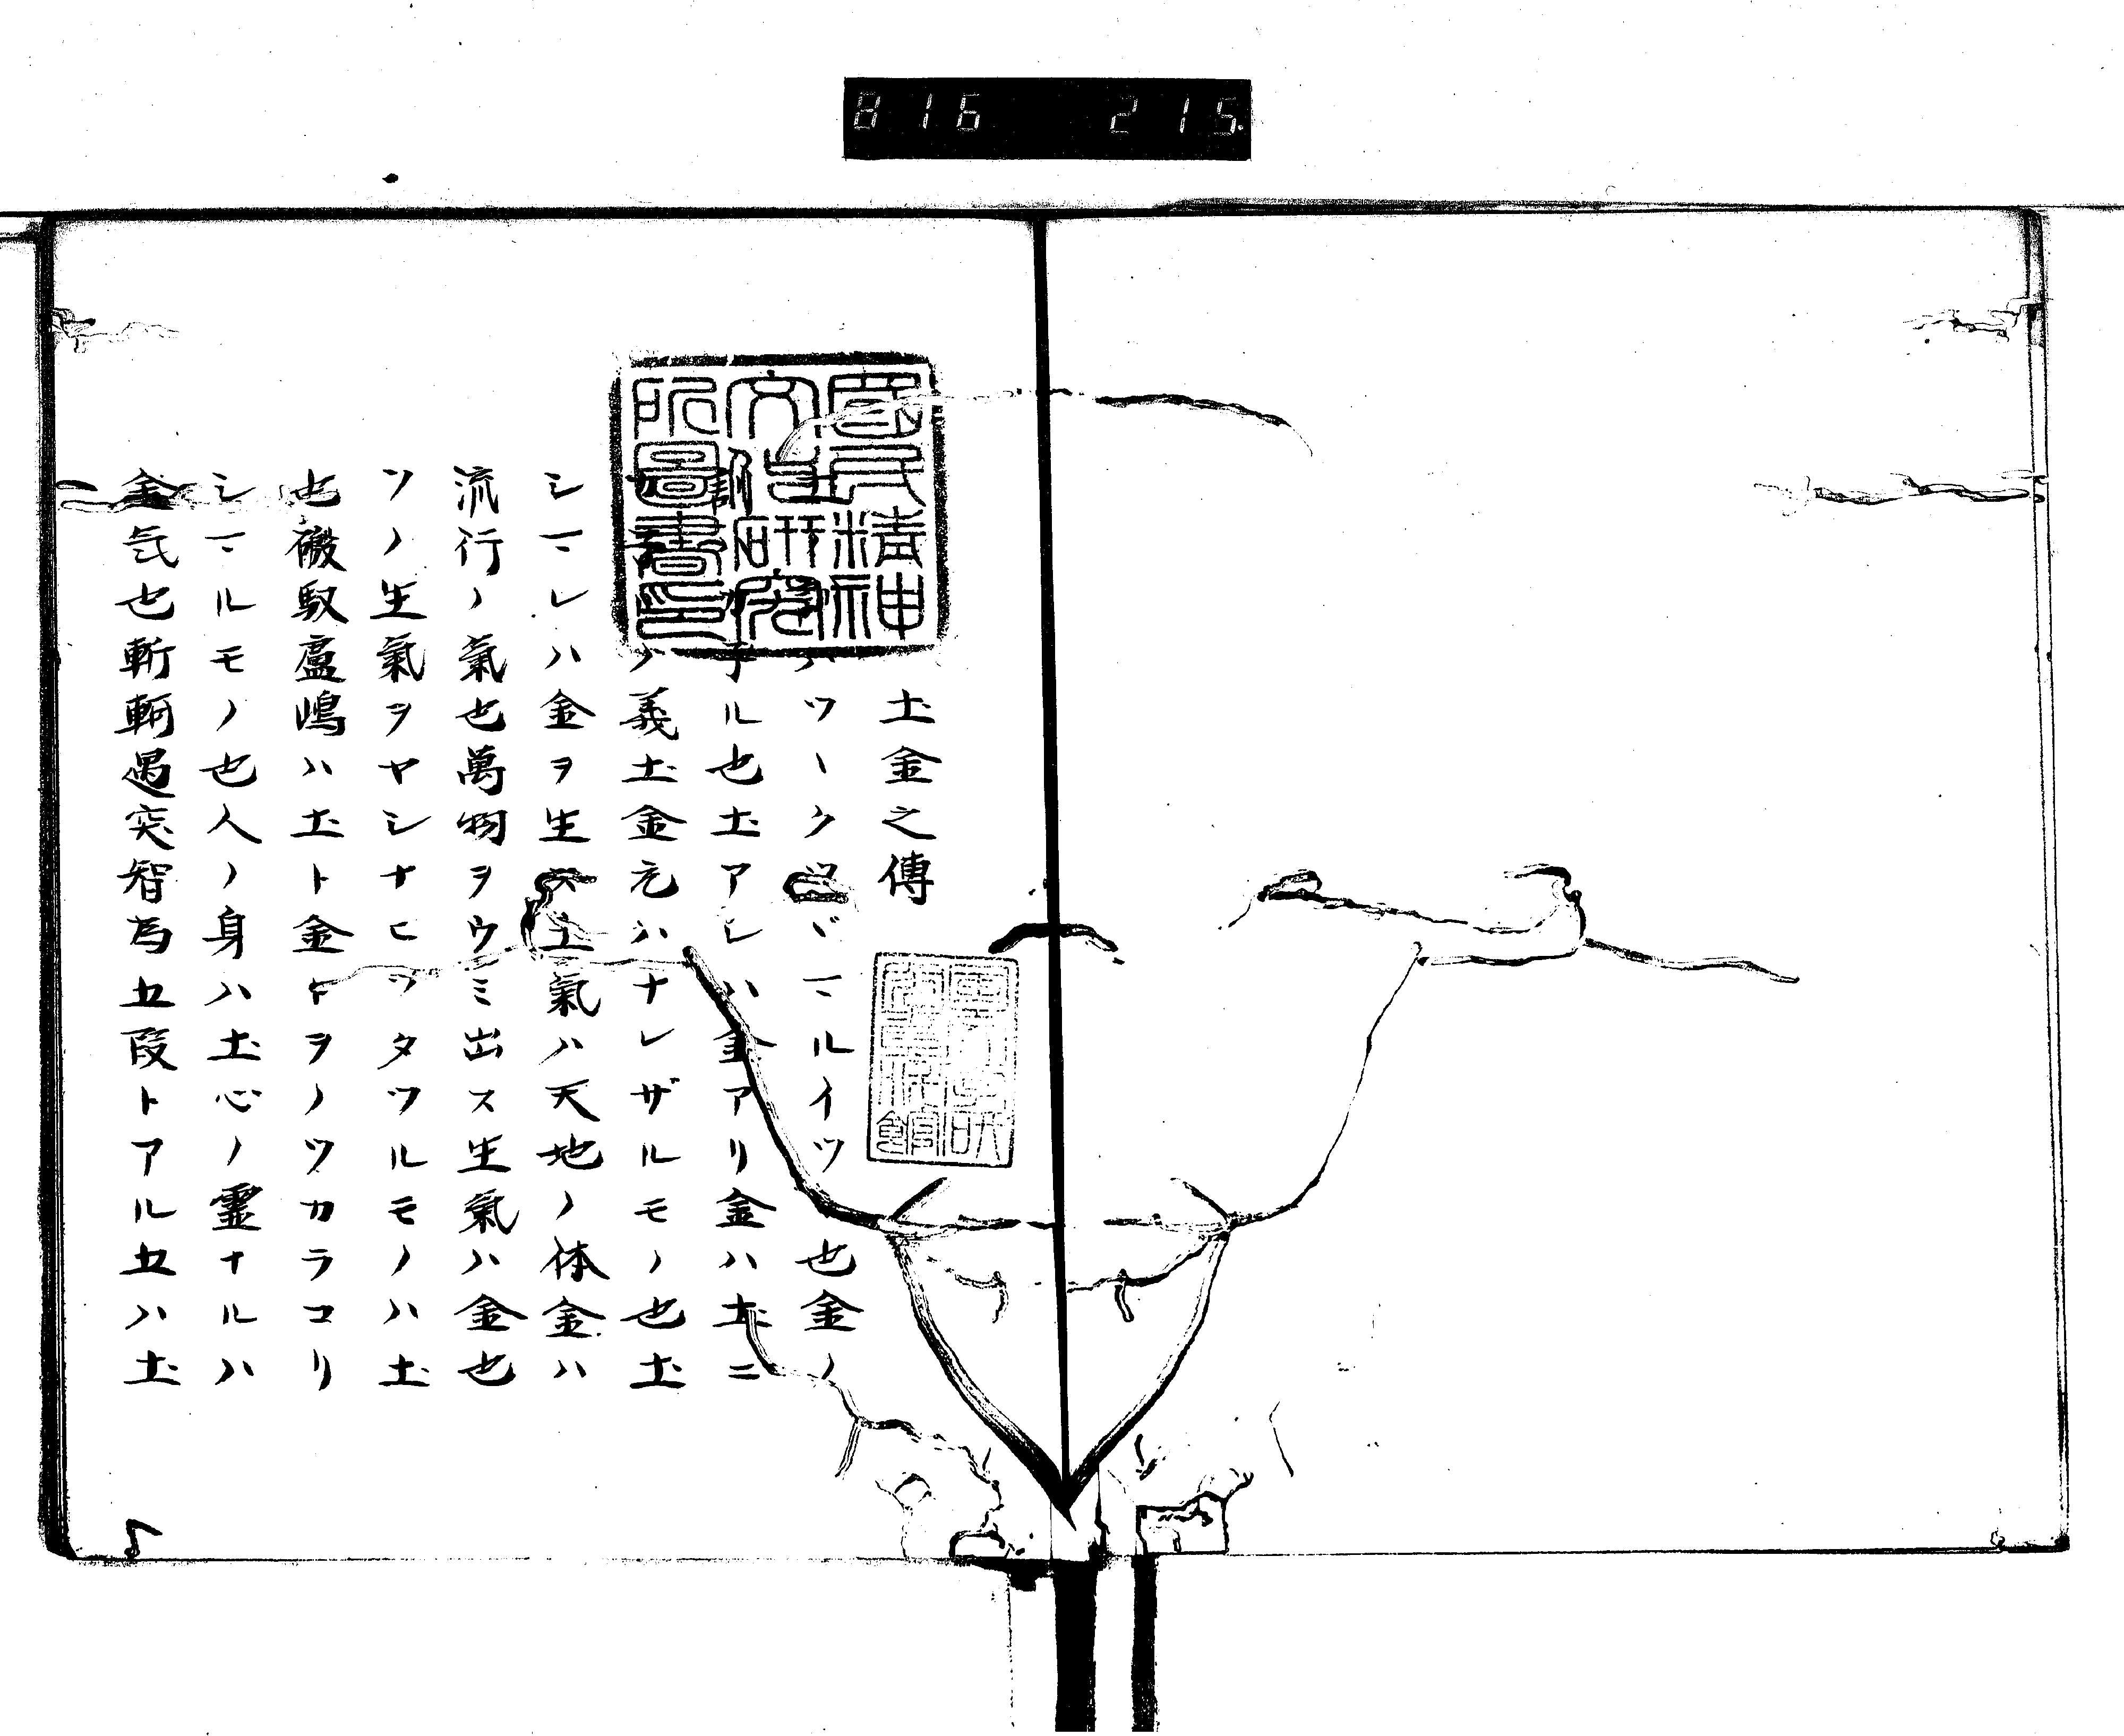 816 215
國民精神
文化研究
所圖書印
土金之傳
ハツヽクヽバマルイツ也金ノ
訓子ル也土アレハ金アリ金ハ土ニ
ノ義土金元ハナレザルモノ也土
シマレハ金ヲ生ス土氣ハ天地ノ体金ハ
流行ノ氣也萬物ヲウミ出ス生氣ハ金也
ソノ生氣ヲヤシナヒソタツルモノハ土
也磤馭盧嶋ハ土ト金トヲノツカラコリ
シマルモノ也人ノ身ハ土心ノ靈ナルハ
金気也斬軻遇突智為五段トアル五ハ土